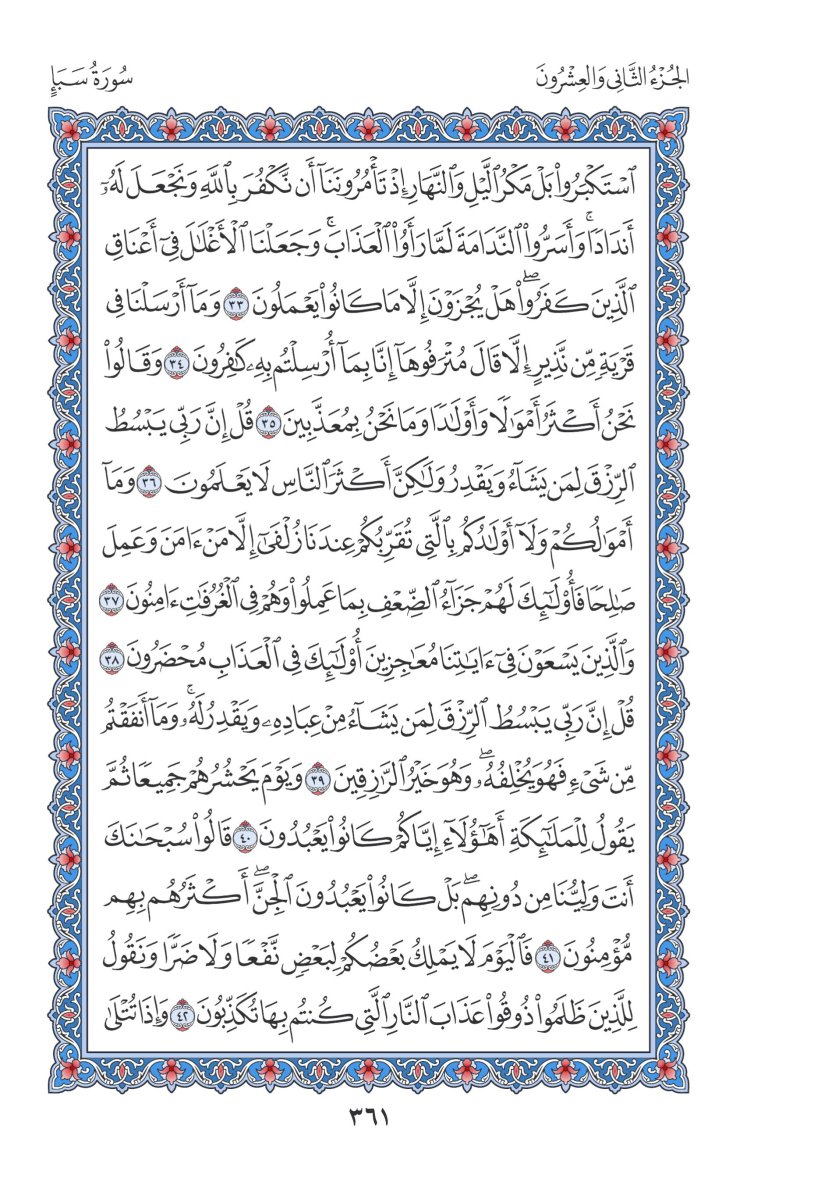 الجُزْءُ الثَّانِي وَالعِشْرُونَ
سُورَةُ سَبَإٍ
ٱسۡتَكۡبَرُواْ بَلۡ مَكۡرُ ٱلَّيۡلِ وَٱلنَّهَارِ إِذۡ تَأۡمُرُونَنَآ أَن نَّكۡفُرَ بِٱللَّهِ وَنَجۡعَلَ لَهُۥٓ
أَندَادٗاۚ وَأَسَرُّواْ ٱلنَّدَامَةَ لَمَّا رَأَوُاْ ٱلۡعَذَابَۚ وَجَعَلۡنَا ٱلۡأَغۡلَٰلَ فِيٓ أَعۡنَاقِ
ٱلَّذِينَ كَفَرُواْۖ هَلۡ يُجۡزَوۡنَ إِلَّا مَا كَانُواْ يَعۡمَلُونَ ٣٣ وَمَآ أَرۡسَلۡنَا فِي
قَرۡيَةٖ مِّن نَّذِيرٍ إِلَّا قَالَ مُتۡرَفُوهَآ إِنَّا بِمَآ أُرۡسِلۡتُم بِهِۦ كَٰفِرُونَ ٣٤ وَقَالُواْ
نَحۡنُ أَكۡثَرُ أَمۡوَٰلٗا وَأَوۡلَٰدٗا وَمَا نَحۡنُ بِمُعَذَّبِينَ ٣٥ قُلۡ إِنَّ رَبِّي يَبۡسُطُ
ٱلرِّزۡقَ لِمَن يَشَآءُ وَيَقۡدِرُ وَلَٰكِنَّ أَكۡثَرَ ٱلنَّاسِ لَا يَعۡلَمُونَ ٣٦ وَمَآ
أَمۡوَٰلُكُمۡ وَلَآ أَوۡلَٰدُكُم بِٱلَّتِي تُقَرِّبُكُمۡ عِندَنَا زُلۡفَىٰٓ إِلَّا مَنۡ ءَامَنَ وَعَمِلَ
صَٰلِحٗا فَأُوْلَٰٓئِكَ لَهُمۡ جَزَآءُ ٱلضِّعۡفِ بِمَا عَمِلُواْ وَهُمۡ فِي ٱلۡغُرُفَٰتِ ءَامِنُونَ ٣٧
وَٱلَّذِينَ يَسۡعَوۡنَ فِيٓ ءَايَٰتِنَا مُعَٰجِزِينَ أُوْلَٰٓئِكَ فِي ٱلۡعَذَابِ مُحۡضَرُونَ ٣٨
قُلۡ إِنَّ رَبِّي يَبۡسُطُ ٱلرِّزۡقَ لِمَن يَشَآءُ مِنۡ عِبَادِهِۦ وَيَقۡدِرُ لَهُۥۚ وَمَآ أَنفَقۡتُم
مِّن شَيۡءٖ فَهُوَ يُخۡلِفُهُۥۖ وَهُوَ خَيۡرُ ٱلرَّٰزِقِينَ ٣٩ وَيَوۡمَ يَحۡشُرُهُمۡ جَمِيعٗا ثُمَّ
يَقُولُ لِلۡمَلَٰٓئِكَةِ أَهَٰٓؤُلَآءِ إِيَّاكُمۡ كَانُواْ يَعۡبُدُونَ ٤٠ قَالُواْ سُبۡحَٰنَكَ
أَنتَ وَلِيُّنَا مِن دُونِهِمۖ بَلۡ كَانُواْ يَعۡبُدُونَ ٱلۡجِنَّۖ أَكۡثَرُهُم بِهِم
مُّؤۡمِنُونَ ٤١ فَٱلۡيَوۡمَ لَا يَمۡلِكُ بَعۡضُكُمۡ لِبَعۡضٖ نَّفۡعٗا وَلَا ضَرّٗا وَنَقُولُ
لِلَّذِينَ ظَلَمُواْ ذُوقُواْ عَذَابَ ٱلنَّارِ ٱلَّتِي كُنتُم بِهَا تُكَذِّبُونَ ٤٢ وَإِذَا تُتۡلَىٰ
٣٦١